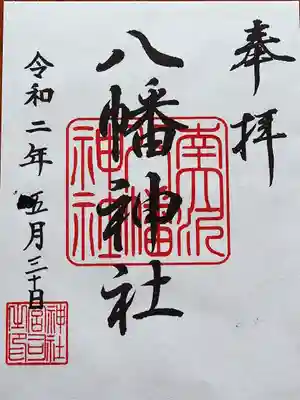 奉拝
八幡神社
令和二年五月三十日
南沢
八幡
神社
神社
宮司
之印